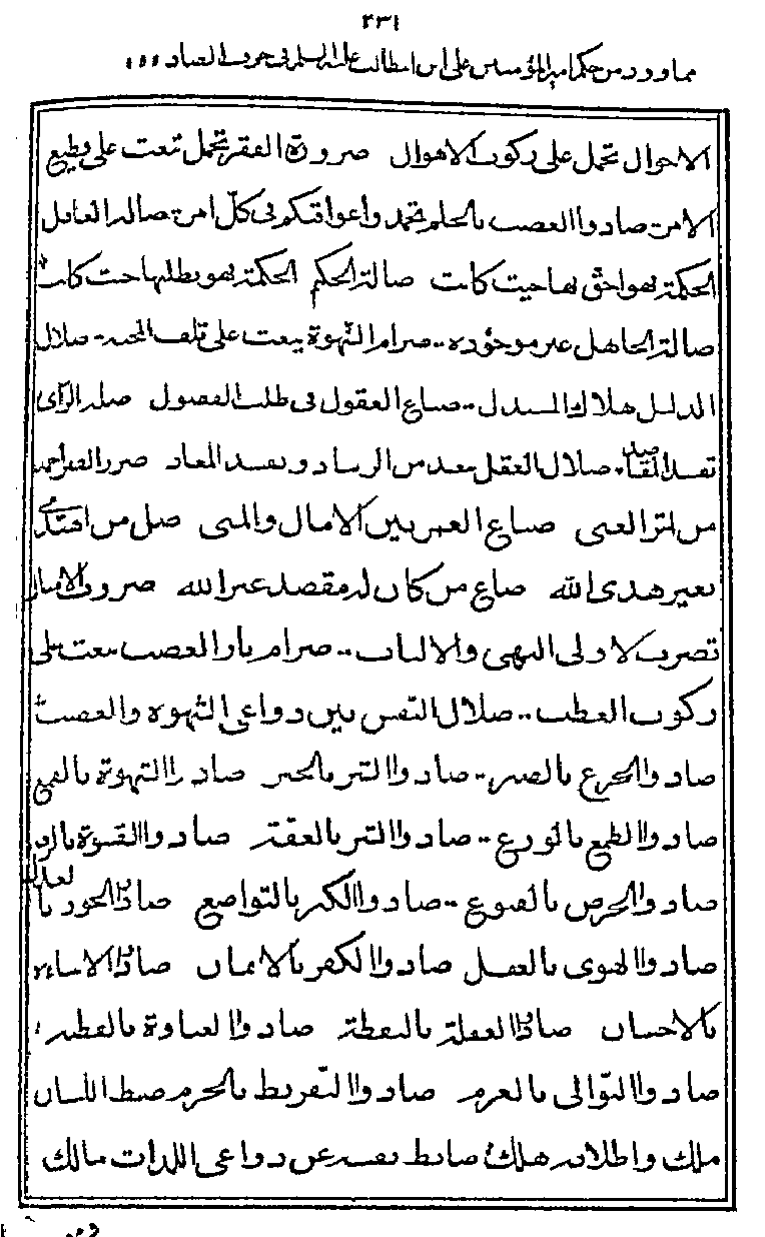 ٢٣١
مما ورد من حكم امير المؤمنين على ابن ابيطالب عليه السلم فى حرف الضاد
الاحوال تحمل على ركوب الاهوال ضرورة الفقر تحمل تبعث على فظيع
الامر ضادوا الغضب بالحلم تحمدوا عواقبكم فى كلّ امر ضالة العاقل
الحكمة فهو احقّ بها حيث كانت ضالة الحكيم الحكمة فهو يطلبها حيث كانت
ضالة الجاهل غير موجوده ضرام الشهوة يبعث على تلف المهجة ضلال
الدليل هلاك المستدل ضياع العقول فى طلب الفضول ضلة الرّأى
تفسد المقاصد ضلال العقل يبعد من الرشاد و يفسد المعاد ضرر الفقر احمد
من اشر الغنى ضياع العمر بين الامال والمنى ضل من اهتدى
بغير هدى الله ضاع من كان له مقصد غير الله ضروب الامثال
تضرب لاولى النهى والالباب ضرام نار الغضب يبعث على
ركوب العطب ضلال النفس بين دواعى الشهوة والغضب
ضادوا الجزع بالصبر ضادوا الشر بالخير ضادوا الشهوة بالقمع
ضادوا الطمع بالورع ضادوا الشره بالعفّة ضادوا القسوة بالرقة
ضادوا الحرص بالقنوع ضادوا الكبر بالتواضع ضادّوا الجور بالعدل
ضادوا الهوى بالعقل ضادوا الكفر بالايمان ضادّوا الاساءة
بالاحسان ضادّوا الغفلة باليقظة ضادوا الغباوة بالفطنة
ضادوا التوانى بالعزم ضادوا التّفريط بالحزم ضبط اللسان
ملك و اطلاقه هلك ضابط نفسه عن دواعى اللذات مالك